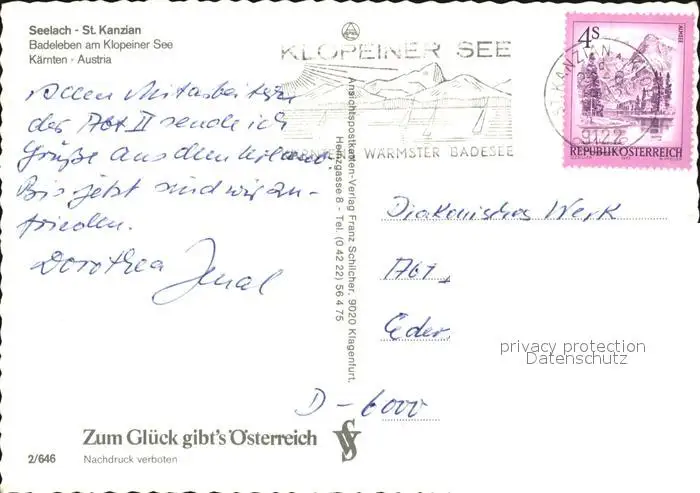 Seelach - St. Kanzian
Badeleben am Klopeiner See
Kärnten · Austria
Allen Mitarbeitern
der Abt II sende ich
Grüße aus dem Urlaub.
Bis jetzt sind wir zu-
frieden.
Dorothea
KLOPEINER SEE
WÄRMSTER BADESEE
4S
ALMSEE
ST. KANZIAN
9122
REPUBLIK ÖSTERREICH
Ansichtspostkarten-Verlag Franz Schilcher, 9020 Klagenfurt,
Heinzgasse 8 - Tel. (0 42 22) 56 4 75
Diakonisches Werk
Abt.
privacy protection
Datenschutz
D-6000
Zum Glück gibt's Österreich
2/646
Nachdruck verboten